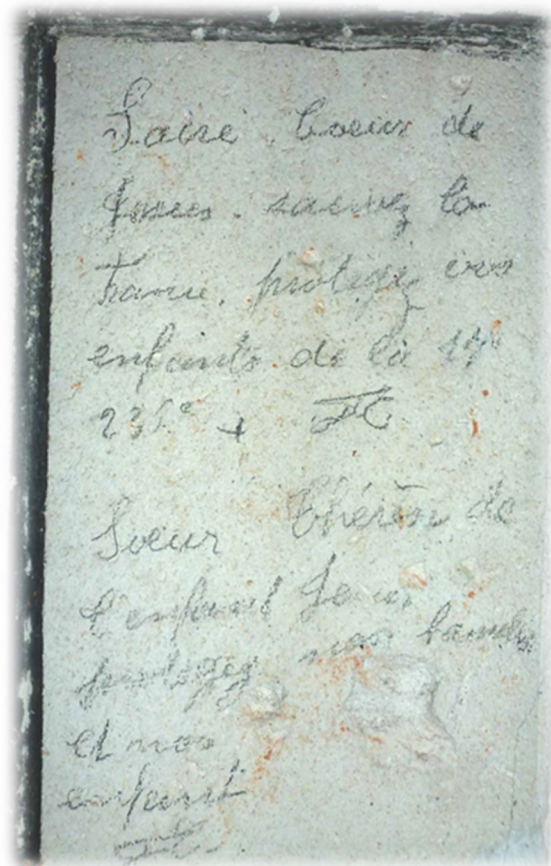 Sacré Coeur de
Jésus. sauvez la
France, protégez vos
enfants de la 19e
236e +
Soeur Thérèse de
l'enfant Jesus
protegez nos familles
et nos
enfant